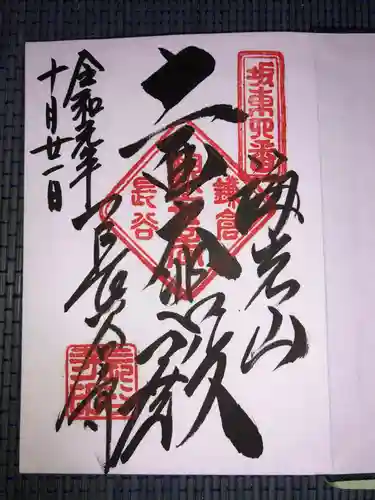 坂東四番
海光山
十一面大悲殿
鎌倉
長谷
長谷寺
令和元年
十月廿一日